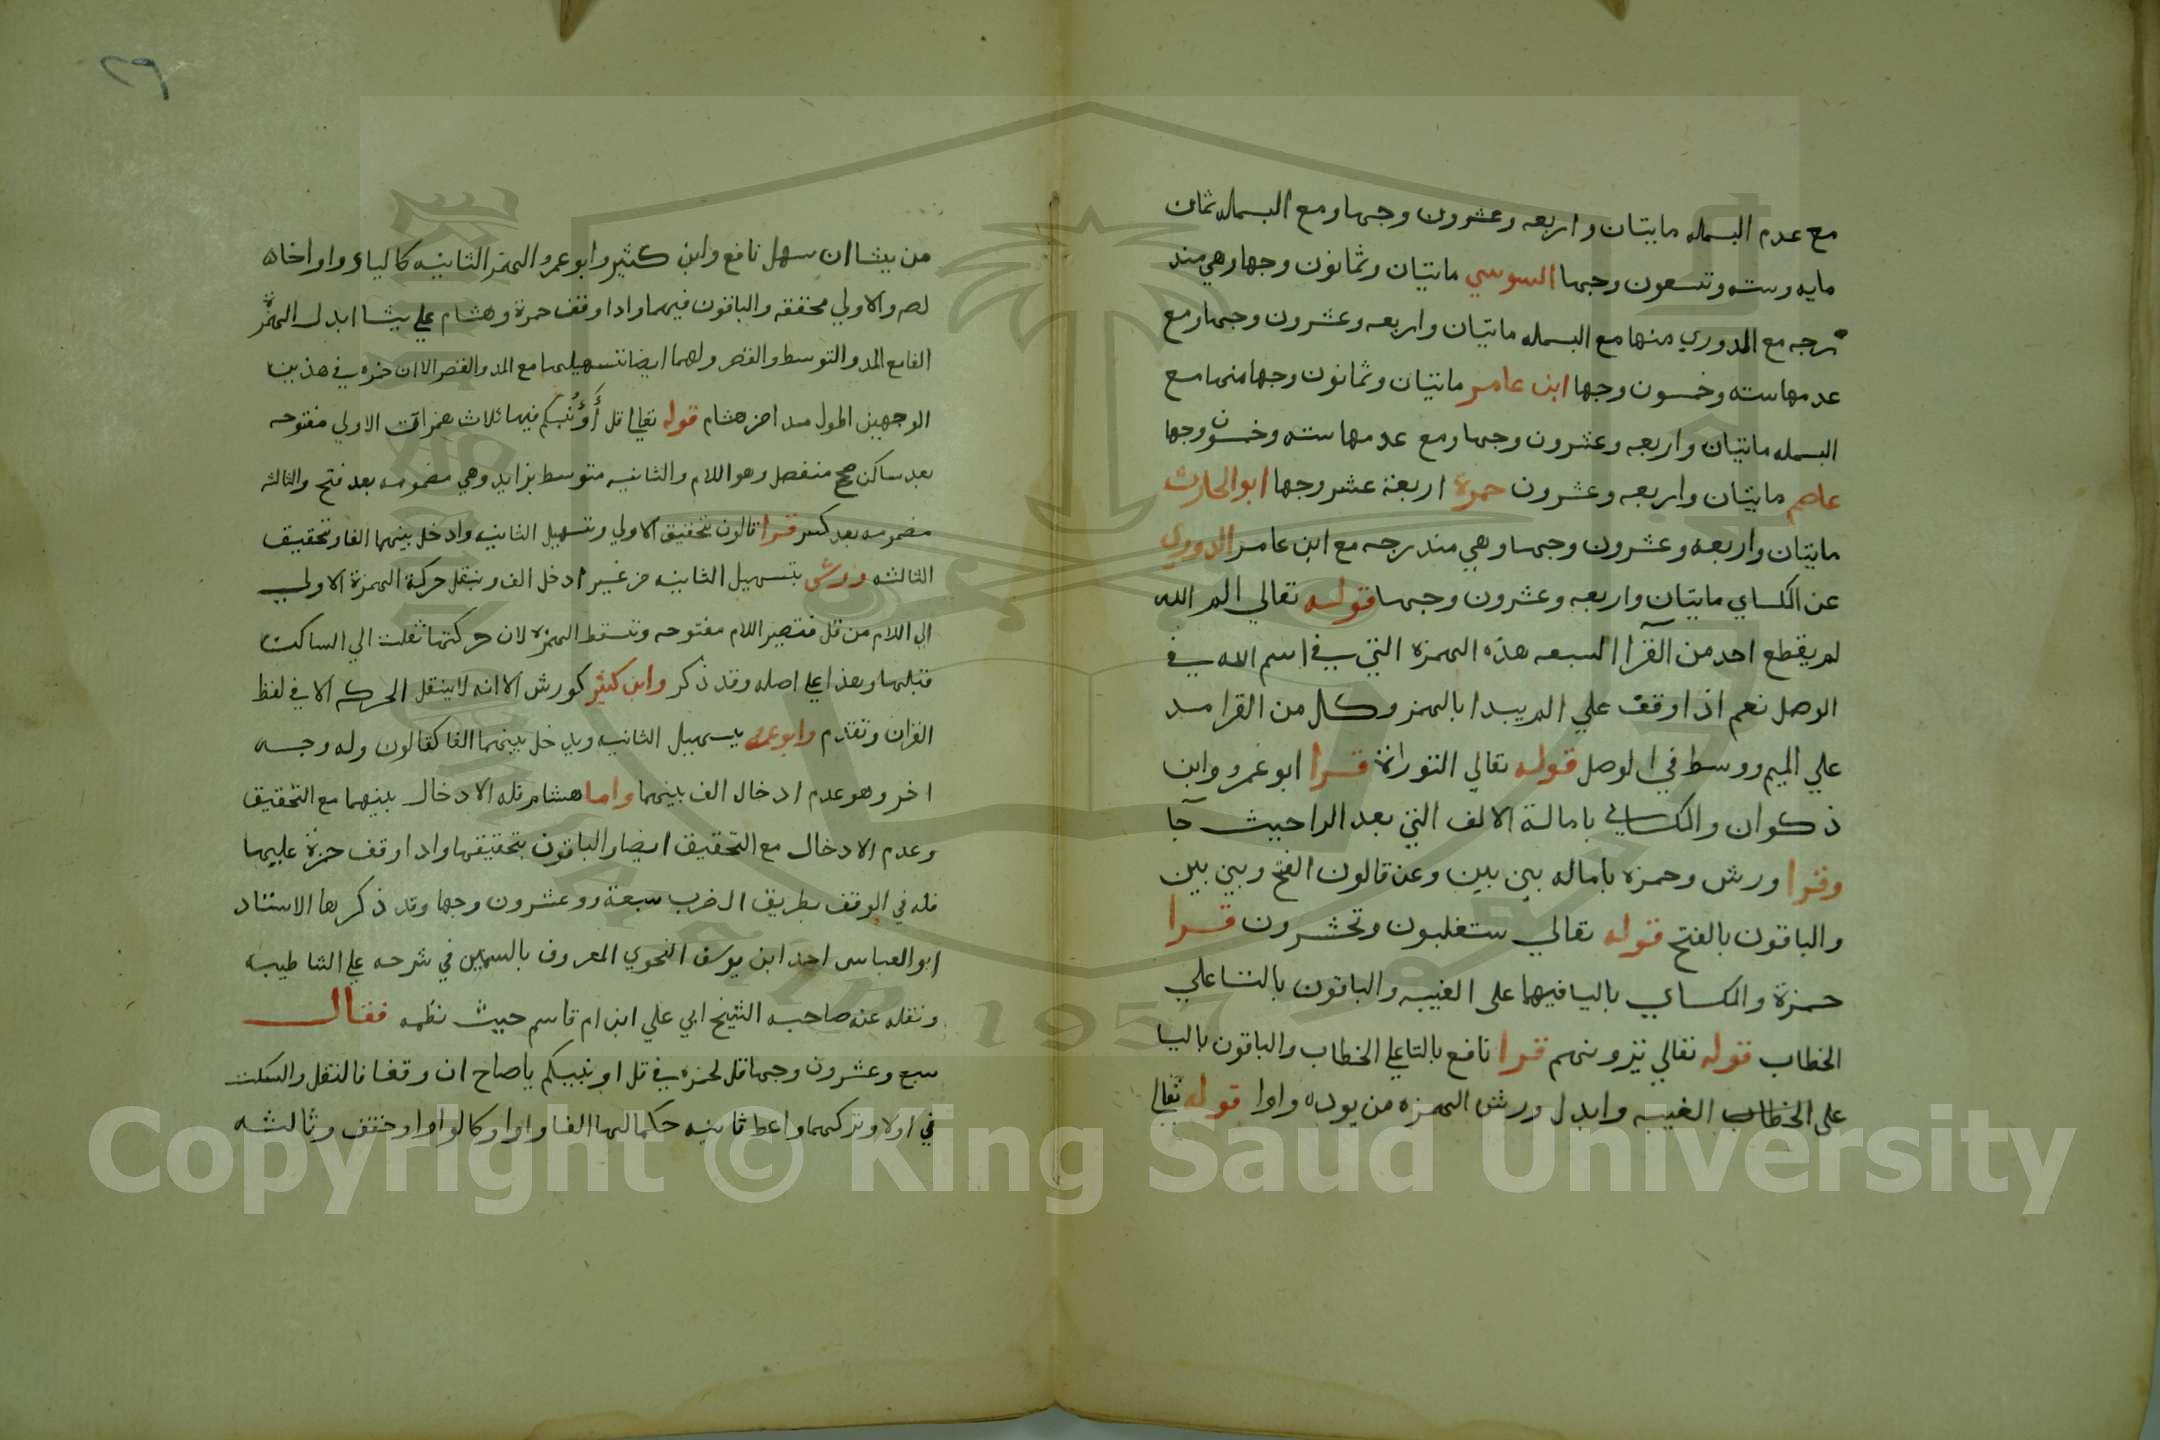 مع عدم البسمله مايتان واربعه وعشرون وجها ومع البسمله ثمان
مايه وسته وتسعون وجها السوسي مايتيان وثمانون وجها وهي مند
رجه مع الدوري منها مع البسمله مايتيان واربعه وعشرون وجها ومع
عدمها سته وخمسون وجها ابن عامر مايتيان وثمانون وجها منها مع
البسمله مايتيان واربعه وعشرون وجها ومع عدمها سته وخمسون وجها
عاصم مايتان واربعه وعشرون حمزة اربعة عشر وجها ابو الحارث
مايتان واربعه وعشرون وجها وهي مندرجه مع ابن عامر الدوري
عن الكساي مايتان واربعه وعشرون وجها قوله تعالي الم الله
لم يقطع احد من القرا السبعه هذه الهمزه التي في اسم الله في
الوصل نعم اذا وقف علي الم يبدا بالهمز وكل من القرا مد
علي الميم ووسط في الوصل قوله تعالي التوراة قرا ابو عمرو وابن
ذكوان والكساي بامالة الالف التي بعد الرا حيث جآ
وقرا ورش وحمزه باماله بين بين وعن قالون الفتح وبين بين
والباقون بالفتح قوله تعالي ستغلبون وتحشرون قرا
حمزة والكساي باليا فيهما على الغيبه والباقون بالتا علي
الخطاب قوله تعالي تزونهم قرا نافع بالتا علي الخطاب والباقون باليا
على الخطاب الغيبه وابدل ورش الهمزه من يوده واوا قوله تعالي
٢٩
من يشا ان سهل نافع وابن كثير وابو عمرو الهمز الثانيه كالياء وواوا خا
لصه والاولي محققه والباقون فيهما واذا وقف حمزة وهشام علي يشا ابدل الهمزة
الفا مع المد والتوسط والقصر ولهما ايضا تسهيلها مع المد والقصر الا ان حمزه في هذين
الوجهين اطول مدا من هشام قوله تعالي قل أَؤُنبِّئكم فيها ثلاث همزات الاولي مفتوحه
بعد ساكن صحيح منفصل وهو اللام والثانيه متوسط بزايد وهي مضمومه بعد فتح والثالثه
مضمومه بعد كسر قرا قالون بتحقيق الاولي وتسهيل الثانيه وادخل بينهما الفا وتحقيق
الثالثه ورش بتسهيل الثانيه من غير ادخل الف وبنقل حركة الهمزة الاولي
الي اللام من قل فتصير اللام مفتوحه وتسقط الهمزه لان حركتها نقلت الي الساكت
قبلها وهذا علي اصله وقد ذكر وابن كثير كورش الا انه لا ينقل الحركه الا في لفظ
القران وتقدم وابو عمرو يسهيل الثانيه ويدخل بينهما الفا كقالون وله وجه
اخر وهو عدم ادخال الف بينهما واما هشام فله الادخال بينهما مع التحقيق
وعدم الادخال مع التحقيق ايضا والباقون بتحقيقها واذا وقف حمزة عليها
فله في الوقف بطريق الضرب سبعة وعشرون وجها وقد ذكرها الاستاد
ابو العباس احمد ابن يوسف النحوي المعروف بالسمين في شرحه علي الشاطبيه
ونقله عنه صاحبه الشيخ ابي علي ابن ام قاسم حيث نظمه فقال
سبع وعشرون وجها قل لحمزه في قل اونبيكم ياصاح ان وقفا فالنقل والسكت
في اولا وتركهما واعط ثانيه حكما لها الفا واوا وكالواو او حقق وثالثه